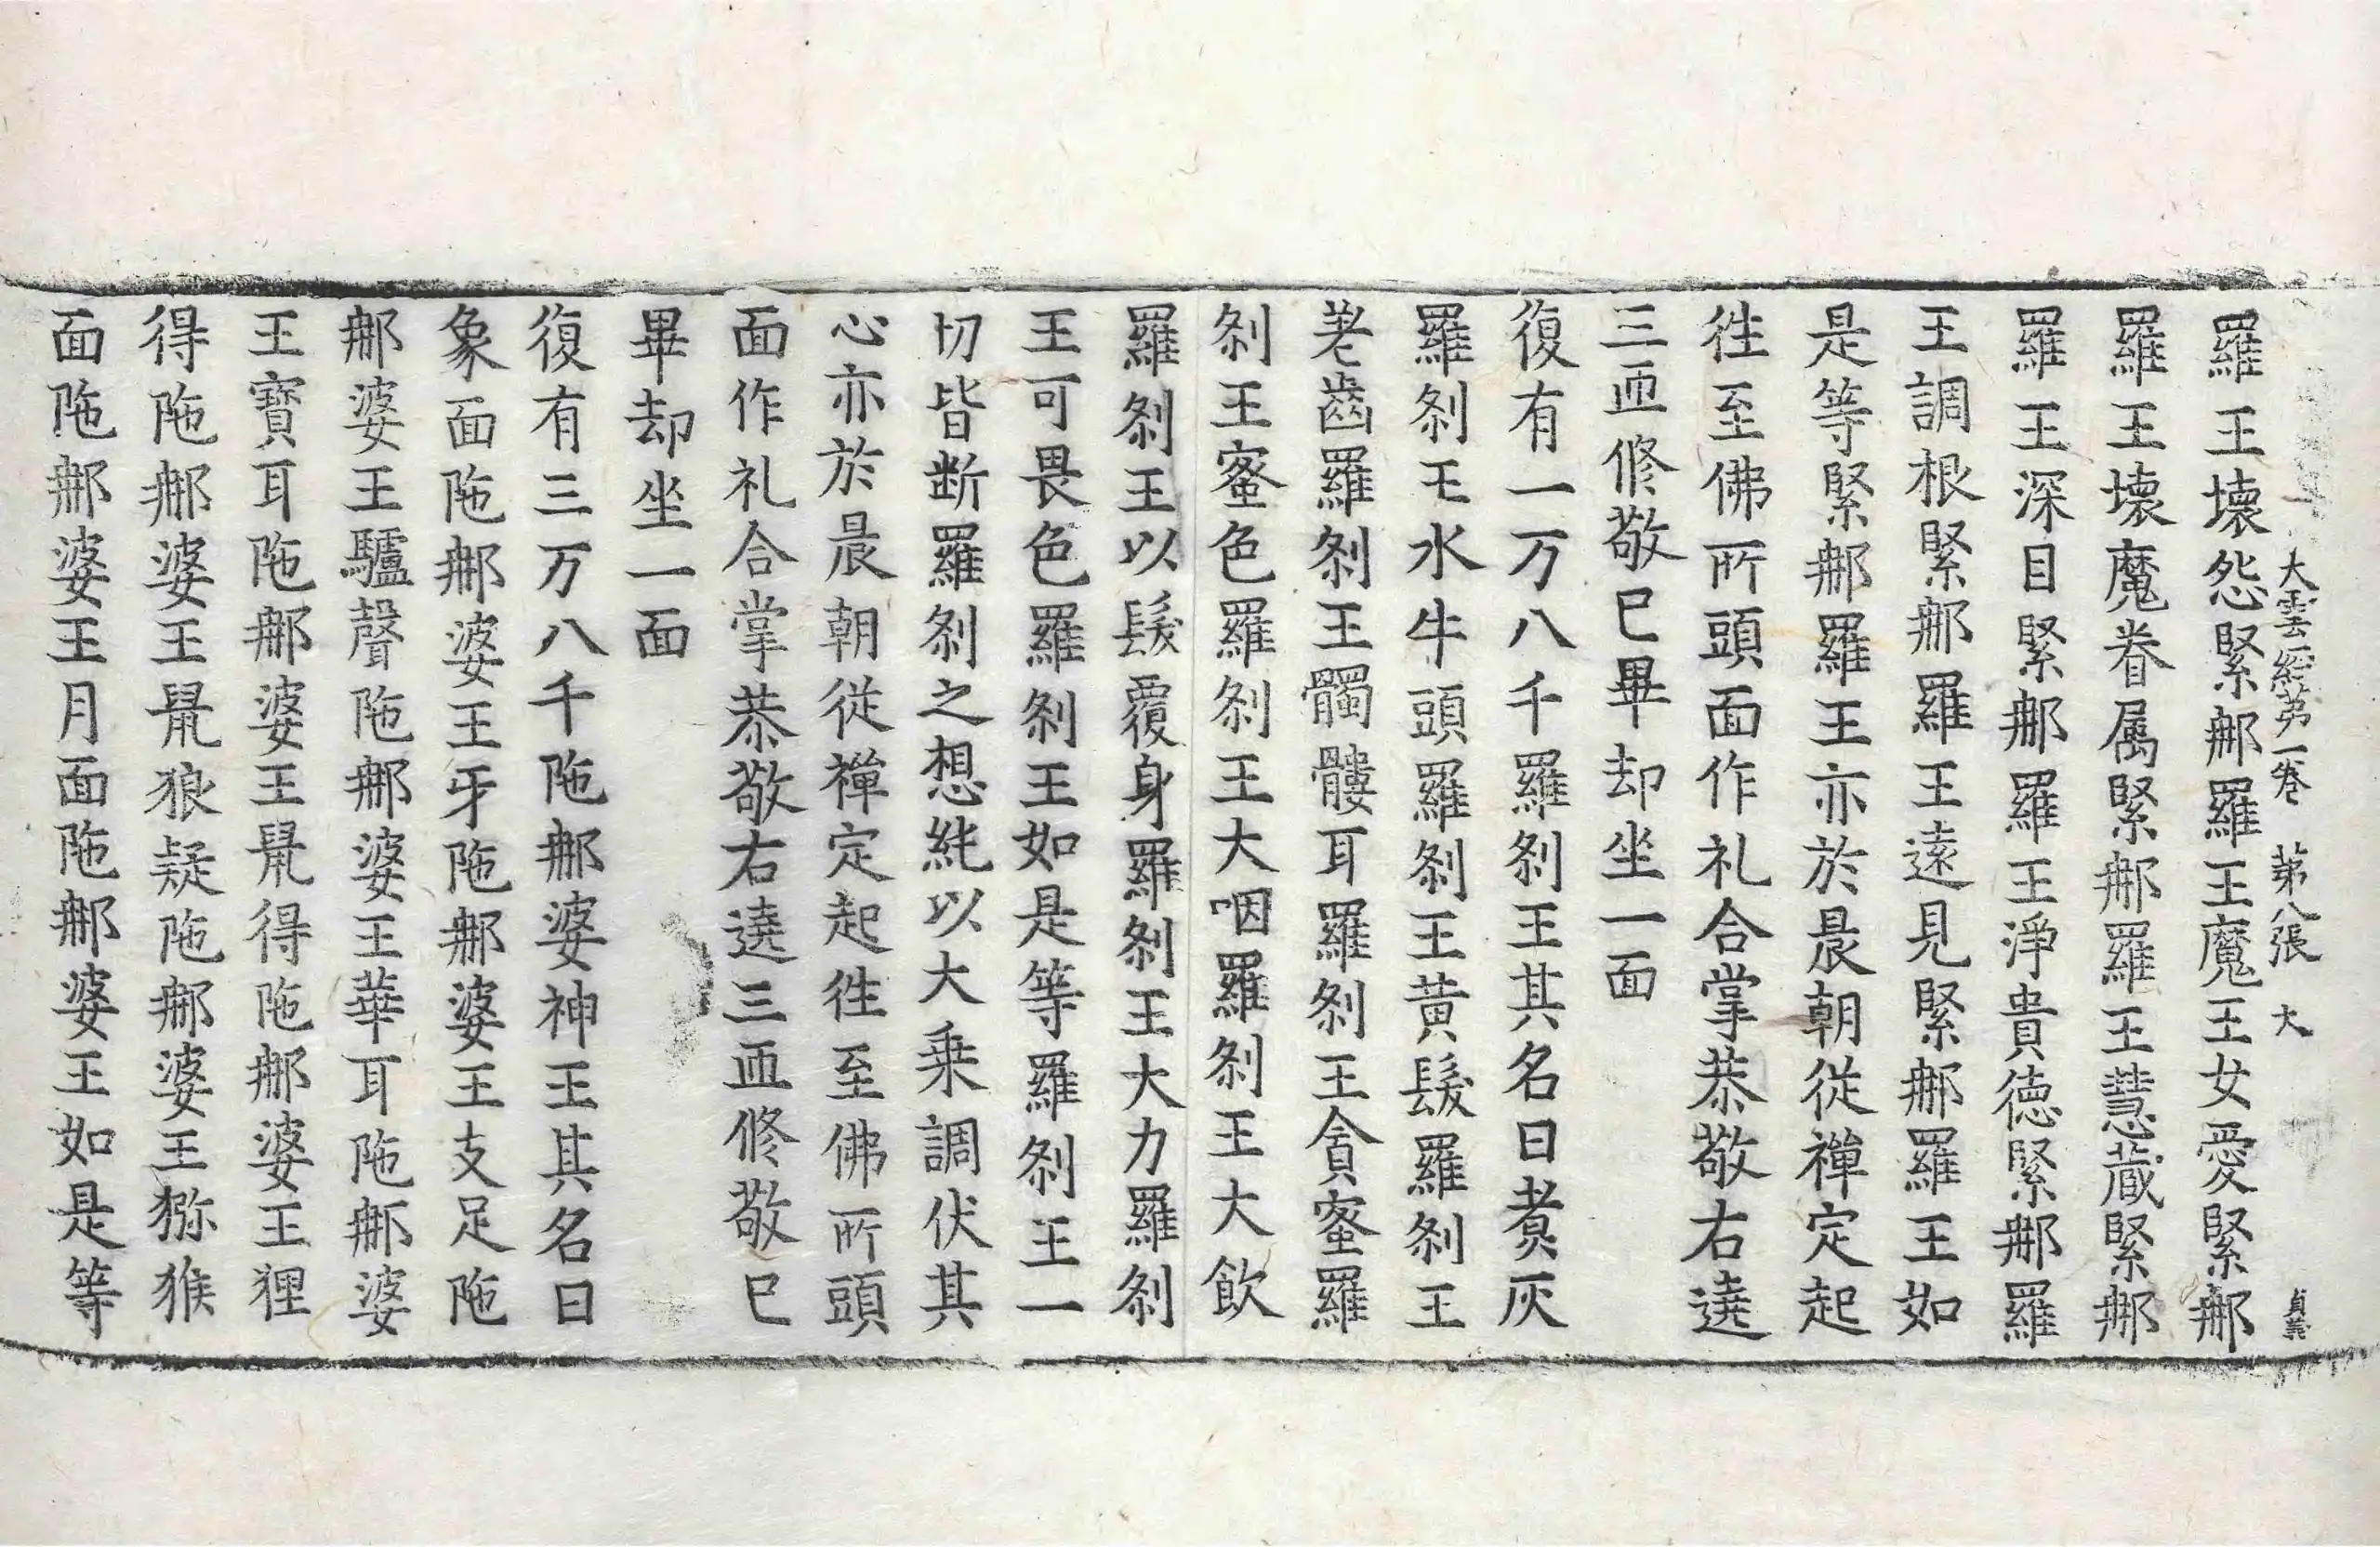 大雲経苐一卷　苐八張　大　貞義
羅王壊怨緊𨙻羅王魔王女愛緊𨙻
羅王壊魔眷属緊𨙻羅王慧蔵緊𨙻
羅王深目緊𨙻羅王淨貴徳緊𨙻羅
王調根緊𨙻羅王遠見緊𨙻羅王如
是等緊𨙻羅王亦於晨朝従禅定起
徃至佛所頭面作礼合掌恭敬右遶
三迊修敬已畢却坐一面
復有一万八千羅刹王其名曰煑灰
羅刹王水牛頭羅刹王黄髮羅刹王
𦒿齒羅刹王髑髏耳羅刹王貪蜜羅
刹王蜜色羅刹王大咽羅刹王大飲
羅刹王以髮覆身羅刹王大力羅刹
王可畏色羅刹王如是等羅刹王一
切皆断羅刹之想純以大乗調伏其
心亦於晨朝従禅定起徃至佛所頭
面作礼合掌恭敬右遶三迊修敬已
畢却坐一面
復有三万八千陁𨙻婆神王其名曰
象面陁𨙻婆王牙陁𨙻婆王支足陁
𨙻婆王驢聲陁𨙻婆王華耳陁𨙻婆
王寳耳陁𨙻婆王㲋得陁𨙻婆王狸
得陁𨙻婆王㲋狼疑陁𨙻婆王獼猴
面陁𨙻婆王月面陁𨙻婆王如是等